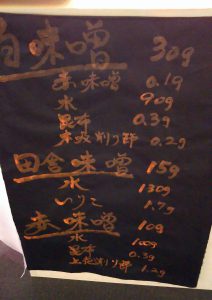 白味噌 30g
赤味噌 0.1g
水 90g
昆布 0.3g
本枯削り節 0.2g
田舎味噌 15g
水 130g
いりこ 1.7g
赤味噌 10g
水 100g
昆布 0.3g
上花削り節 1.2g